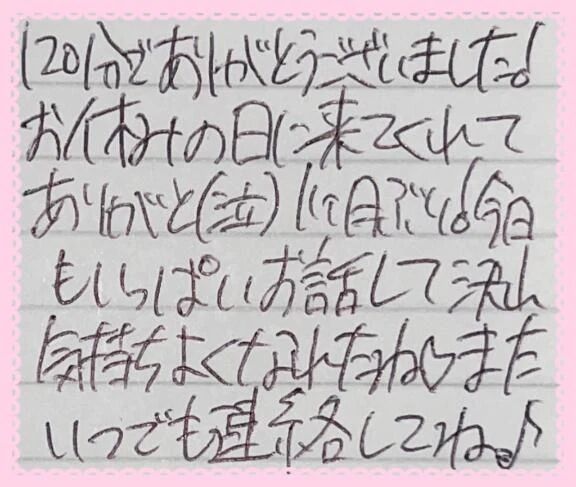 120分でありがとうございました!
お休みの日に来てくれて
ありがと(泣) 今日
もいっぱいお話して
気持ちよくなれたね♡また
いつでも連絡してね♪